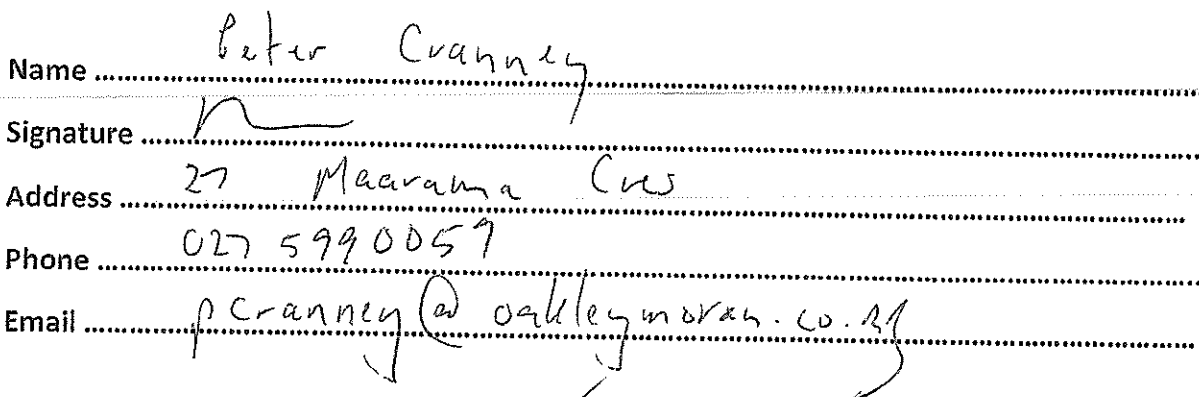 Name Peter Cranney
Signature
Address 27 Maarama Cres
Phone 027 5990059
Email pcranney@oakleymoran.co.nz